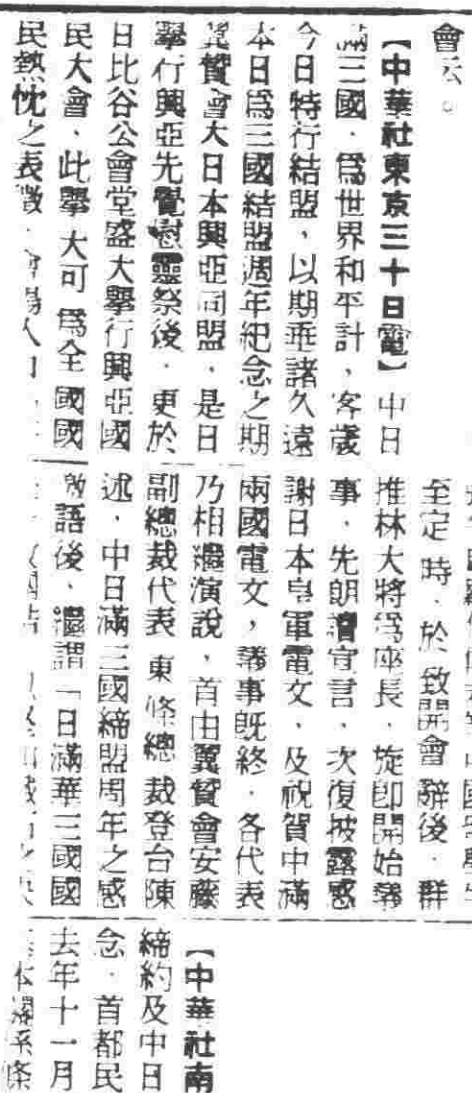 會云。
【中華社東京三十日電】中日
滿三國．爲世界和平計，客歲
今日特行結盟，以期垂諸久遠
本日爲三國結盟週年紀念之期
翼贊會大日本興亞同盟，是日
舉行興亞先覺慰靈祭後．更於
日比谷公會堂盛大舉行興亞國
民大會、此舉大可爲全國國
民熱忱之表徵．會場入口
至定時．於致開會辭後．群
推林大將爲座長．旋即開始議
事．先朗讀宣言．次復披露感
謝日本皇軍電文，及祝賀中滿
兩國電文，議事既終．各代表
乃相繼演說，首由翼贊會安藤
副總裁代表東條總裁登台陳
述．中日滿三國締盟周年之感
激語後．繼謂「日滿華三國國
【中華社南
締約及中日
念．首都民
去年十一月
本關系條